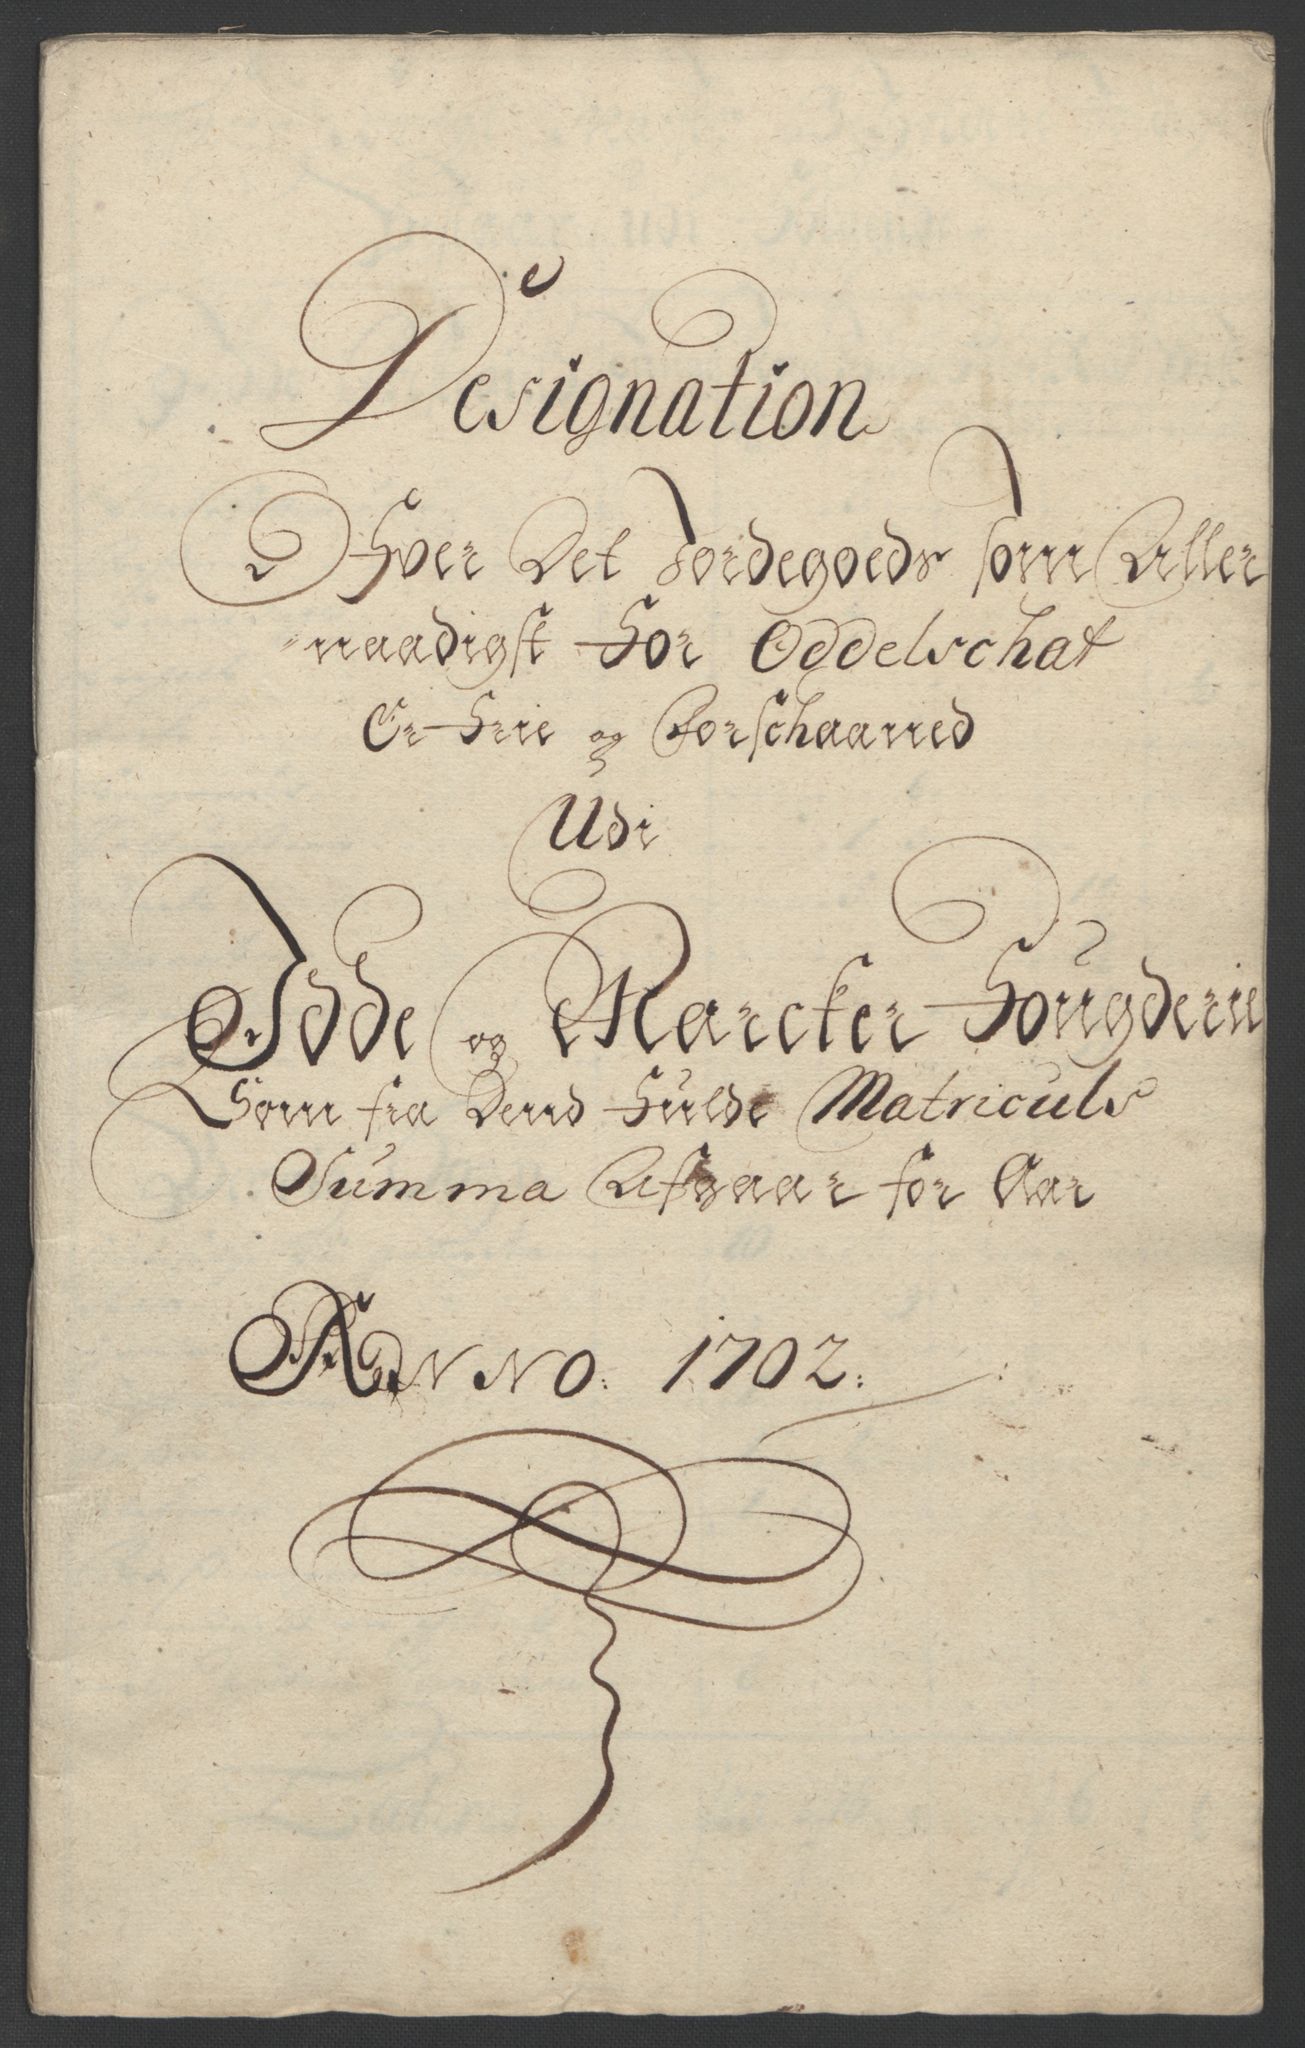 Designation
Ofver Det Jordegoeds som Aller
naadigst for Oddelschat
Er frie og Forschaaned
Udi
Idde og Marcker Fougderie
Som fra Dend fulde Matriculs
Summa Afgaar for Aar
ANNO. 1702.